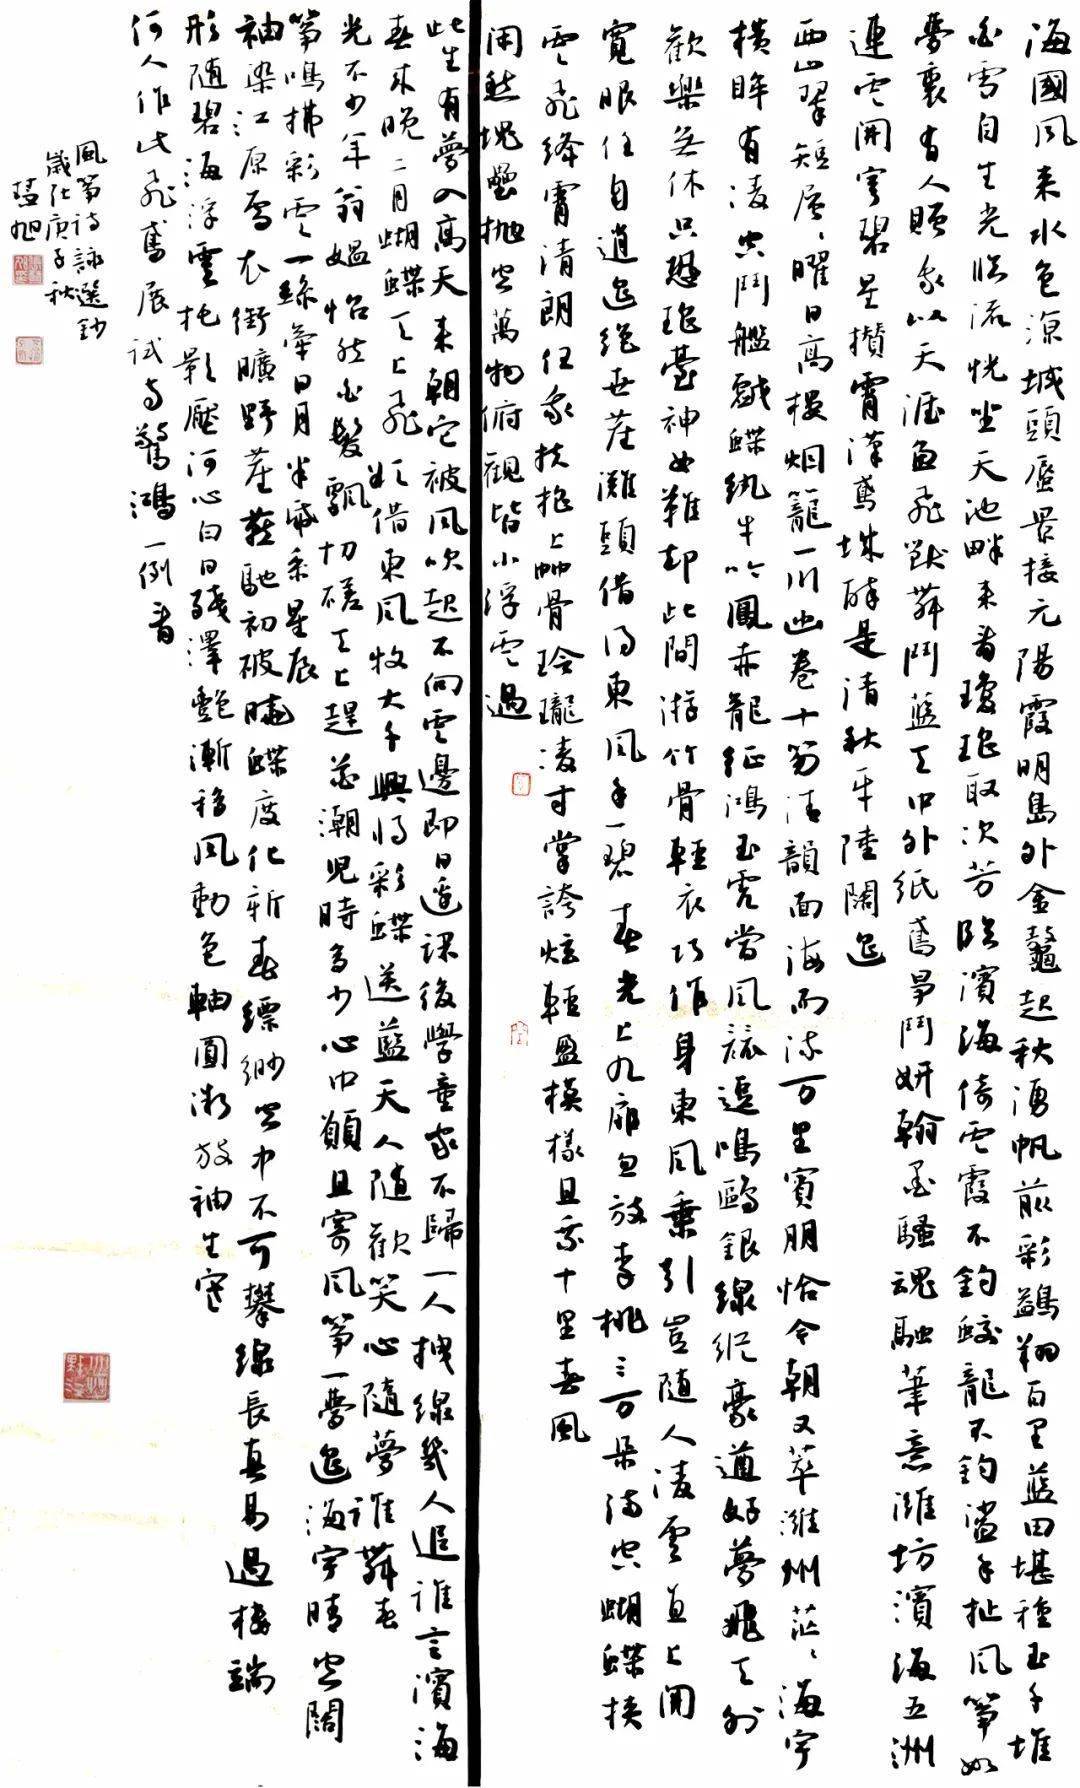 海國風來水色涼城頭蜃景接元陽霞明島外金鼇起秋湧帆前彩鷁翔百里藍田堪種玉千堆
白雪自生光臨流恍坐天池畔來看瓊瑤取次芳臨濱海倚雲霞不釣蛟龍不釣鯊手扯風箏如
夢裏有人贈我以天涯魚飛獸舞鬥藍天中外紙鳶爭鬥妍翰墨騷魂融筆意濰坊濱海五洲
連雲開穹碧星攢霄漢鳶姝醉是清秋平陸闊邊
西山翠短層々曜日高樓烟籠一川幽卷十笏清韻面海而流万里賓朋恰今朝又萃濰州茫々海宇
橫眸有凌空鬥艦戲蝶紈牛吟鳳赤龍征鴻玉虎當風競逗鳴鷗銀線縱豪遒好夢飛天外
歡樂無休只恐瑤臺神女難却此間游竹骨輕衣巧作身東風乘引豈隨人凌雲直上開
寬眼任自逍遙絕世塵灘頭借得東風手一碧春光上九霄忽放李桃三万朵滿空蝴蝶挾
雲飛絳霄清朗任我扶搖上幽骨玲瓏凌寸掌誇炫輕盈模樣且乘十里春風
閑愁塊壘拋空萬物俯觀皆小浮雲過
此生有夢入高天來朝它被風吹起不向雲邊即日邊課後學童家不歸一人拽線幾人追誰言濱海
春來晚二月蝴蝶天上飛欣借東風牧大千興將彩蝶送藍天人隨歡笑心隨夢誰舞春
光不少年翁媼怡然白髮飄切磋天上趕花潮兒時多少心中願且寄風箏一夢遙海宇晴空闊
箏鳴拂彩雲一線牽日月半步乘星辰
袖染江原鳥衣銜曠野塵鶯馳初破曉蝶度化新春縹緲空中不可攀線長真易過樓端
形隨碧海浮雲托影壓河心白日殘澤艷漸移風動色軸圓漸放袖生寒
何人作此飛鳶展試與驚鴻一例看
風箏詩詠選鈔
歲在庚子秋